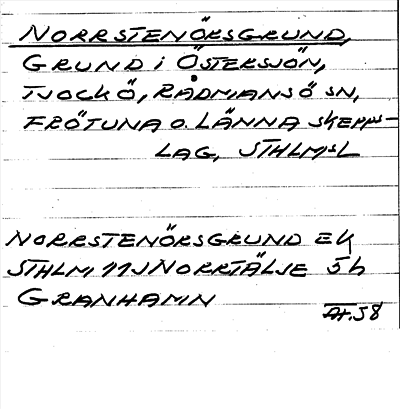 NORRSTENÖRSGRUND,
GRUND i ÖSTERSJÖN,
TJOCKÖ, RÅDMANSÖ SN,
FRÖTUNA O. LÄNNA SKEPPS-
LAG, STHLMSL
NORRSTENÖRSGRUND EK
STHLM 11J NORRTÄLJE 5h
GRANHAMN
At.58